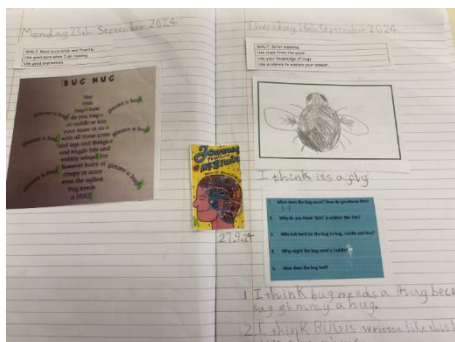 Monday 23th September 2024
WALT: Read accurately and fluently.
Use good pace when I am reading.
Use good expression.
BUG HUG
tiny
little
bug a bug
do you hug a
or cuddle or kiss
your mum or do a
with all those arms
and legs and things
and wiggly bits and
wobbly wings? for
however hairy or
creepy or scary
even the ugliest
bug needs
a HUG!
gimme a hug!
gimme a hug!
gimme a hug!
gimme a hug!
gimme a hug!
gimme a hug!
Journey
27.9.24
Thursday 26th September 2024
WALT: Infer meaning
Use clues from the poem
Use your knowledge of bugs
Use evidence to explore your answer.
I think its a fly
1. What does the bug want? How do you know this?
2. Why do you think 'BUG' is written like this?
3. Why is it hard for the bug to hug, cuddle and kiss?
4. Why might the bug need a cuddle?
5. How does the bug feel?
1 I think bug needs a hug bec
bug gimmy a hug.
2. I think BUG is written like this